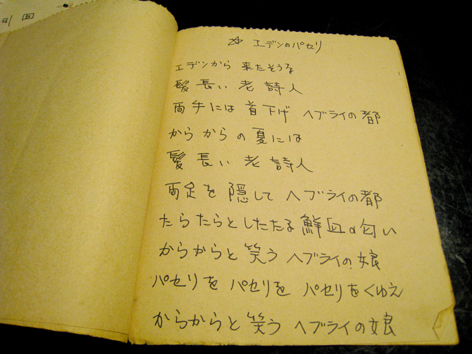 ☆ エデンのパセリ
エデンから 来たそうな
髪長い 老詩人
両手には 首下げ ヘブライの都
からからの夏には
髪長い 老詩人
両足を 隠して ヘブライの都
たらたらとしたたる 鮮血の匂い
からからと 笑う ヘブライの娘
パセリを パセリを パセリをくゆえ
からからと 笑う ヘブライの娘